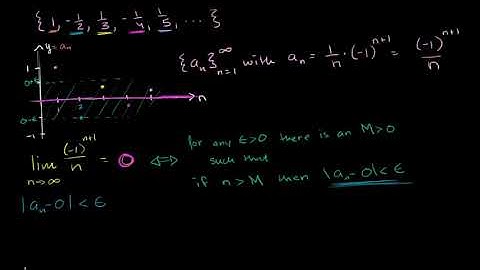 {1, -1/2, 1/3, -1/4, 1/5, ...}
y=aₙ
{aₙ}ₙ₌₁^∞ with aₙ = 1/n · (-1)ⁿ⁺¹ = (-1)ⁿ⁺¹/n
1
0+ε
n
0-ε
-1
lim n→∞ (-1)ⁿ⁺¹/n = 0 ⇔ for any ε>0 there is an M>0
such that
if n>M then |aₙ-0|<ε
|aₙ-0|<ε